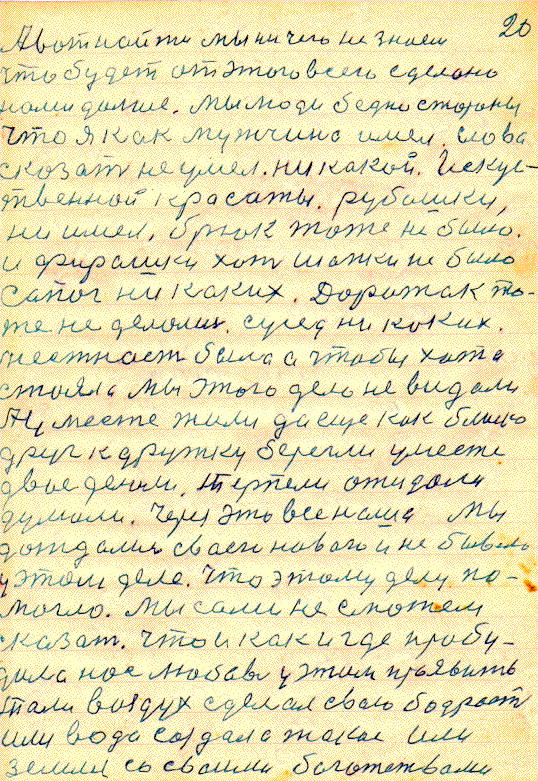 20
А вот найти мы ничего не знаем
что будет от этого всего сделано
нами далше. Мы люди бедно стороны
что я как мужчина имел. слова
сказат не умел. ни какой. Искус-
твенной красаты. рубашки,
ни имел, брюк тоже не было.
и фурашки хот шапки не было
сапог ни каких. Дорожак то-
же не делолис. сусед ни коких.
честност была а чтобы хата
стояла мы этого дело не видали
Ну месте жили да еще как близко
друг к дружку берегли уместе
двое деньги. терпели ожидали
думали. Через это все наша мы
дождалис своего новаго и не бывало
у этом деле. что этому делу по-
могло. мы сами не сможем
сказат. что и как и где пробу-
дила нас любавь у этом проявить
Или воздух сделал сваю бодраст
или вода создала такое или
земля со своими боготствами